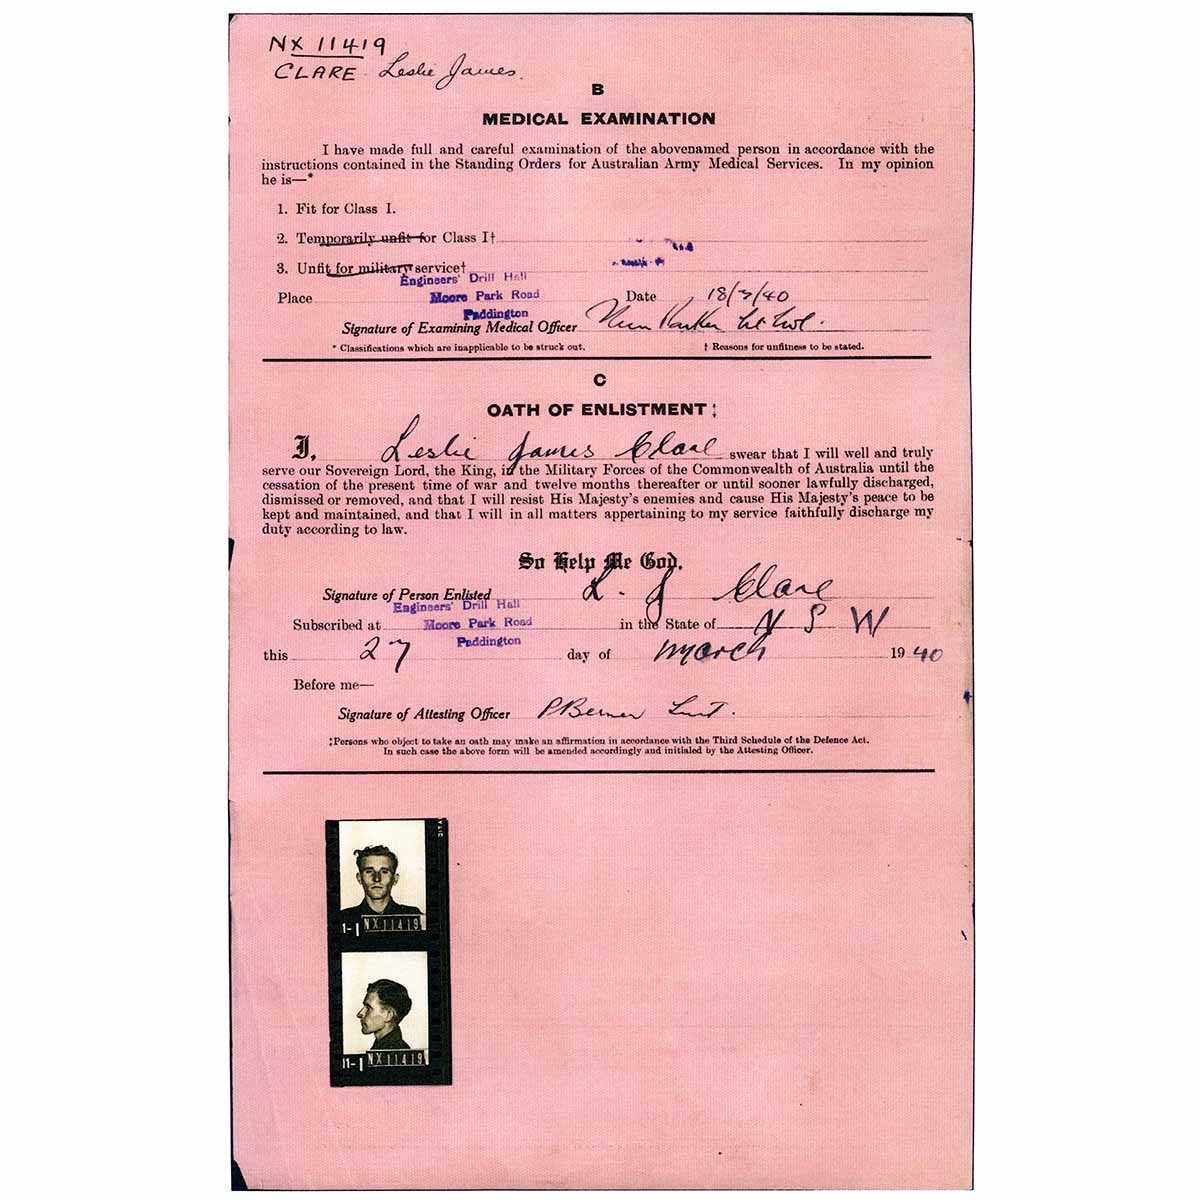 NX 11419
CLARE Leslie James.
B
MEDICAL EXAMINATION
I have made full and careful examination of the abovenamed person in accordance with the
instructions contained in the Standing Orders for Australian Army Medical Services. In my opinion
he is—*
1. Fit for Class I.
2. Temporarily unfit for Class I†
3. Unfit for military service†
Engineers' Drill Hall
Place Moore Park Road Date 18/3/40
Paddington
Signature of Examining Medical Officer
* Classifications which are inapplicable to be struck out. † Reasons for unfitness to be stated.
C
OATH OF ENLISTMENT ‡
I, Leslie James Clare swear that I will well and truly
serve our Sovereign Lord, the King, in the Military Forces of the Commonwealth of Australia until the
cessation of the present time of war and twelve months thereafter or until sooner lawfully discharged,
dismissed or removed, and that I will resist His Majesty's enemies and cause His Majesty's peace to be
kept and maintained, and that I will in all matters appertaining to my service faithfully discharge my
duty according to law.
So Help Me God.
Signature of Person Enlisted L. J Clare
Engineers' Drill Hall
Subscribed at Moore Park Road in the State of N S W
Paddington
this 27 day of march 1940
Before me—
Signature of Attesting Officer P Berner Lieut.
‡Persons who object to take an oath may make an affirmation in accordance with the Third Schedule of the Defence Act.
In such case the above form will be amended accordingly and initialed by the Attesting Officer.
1-1 NX11419
11-1 NX11419